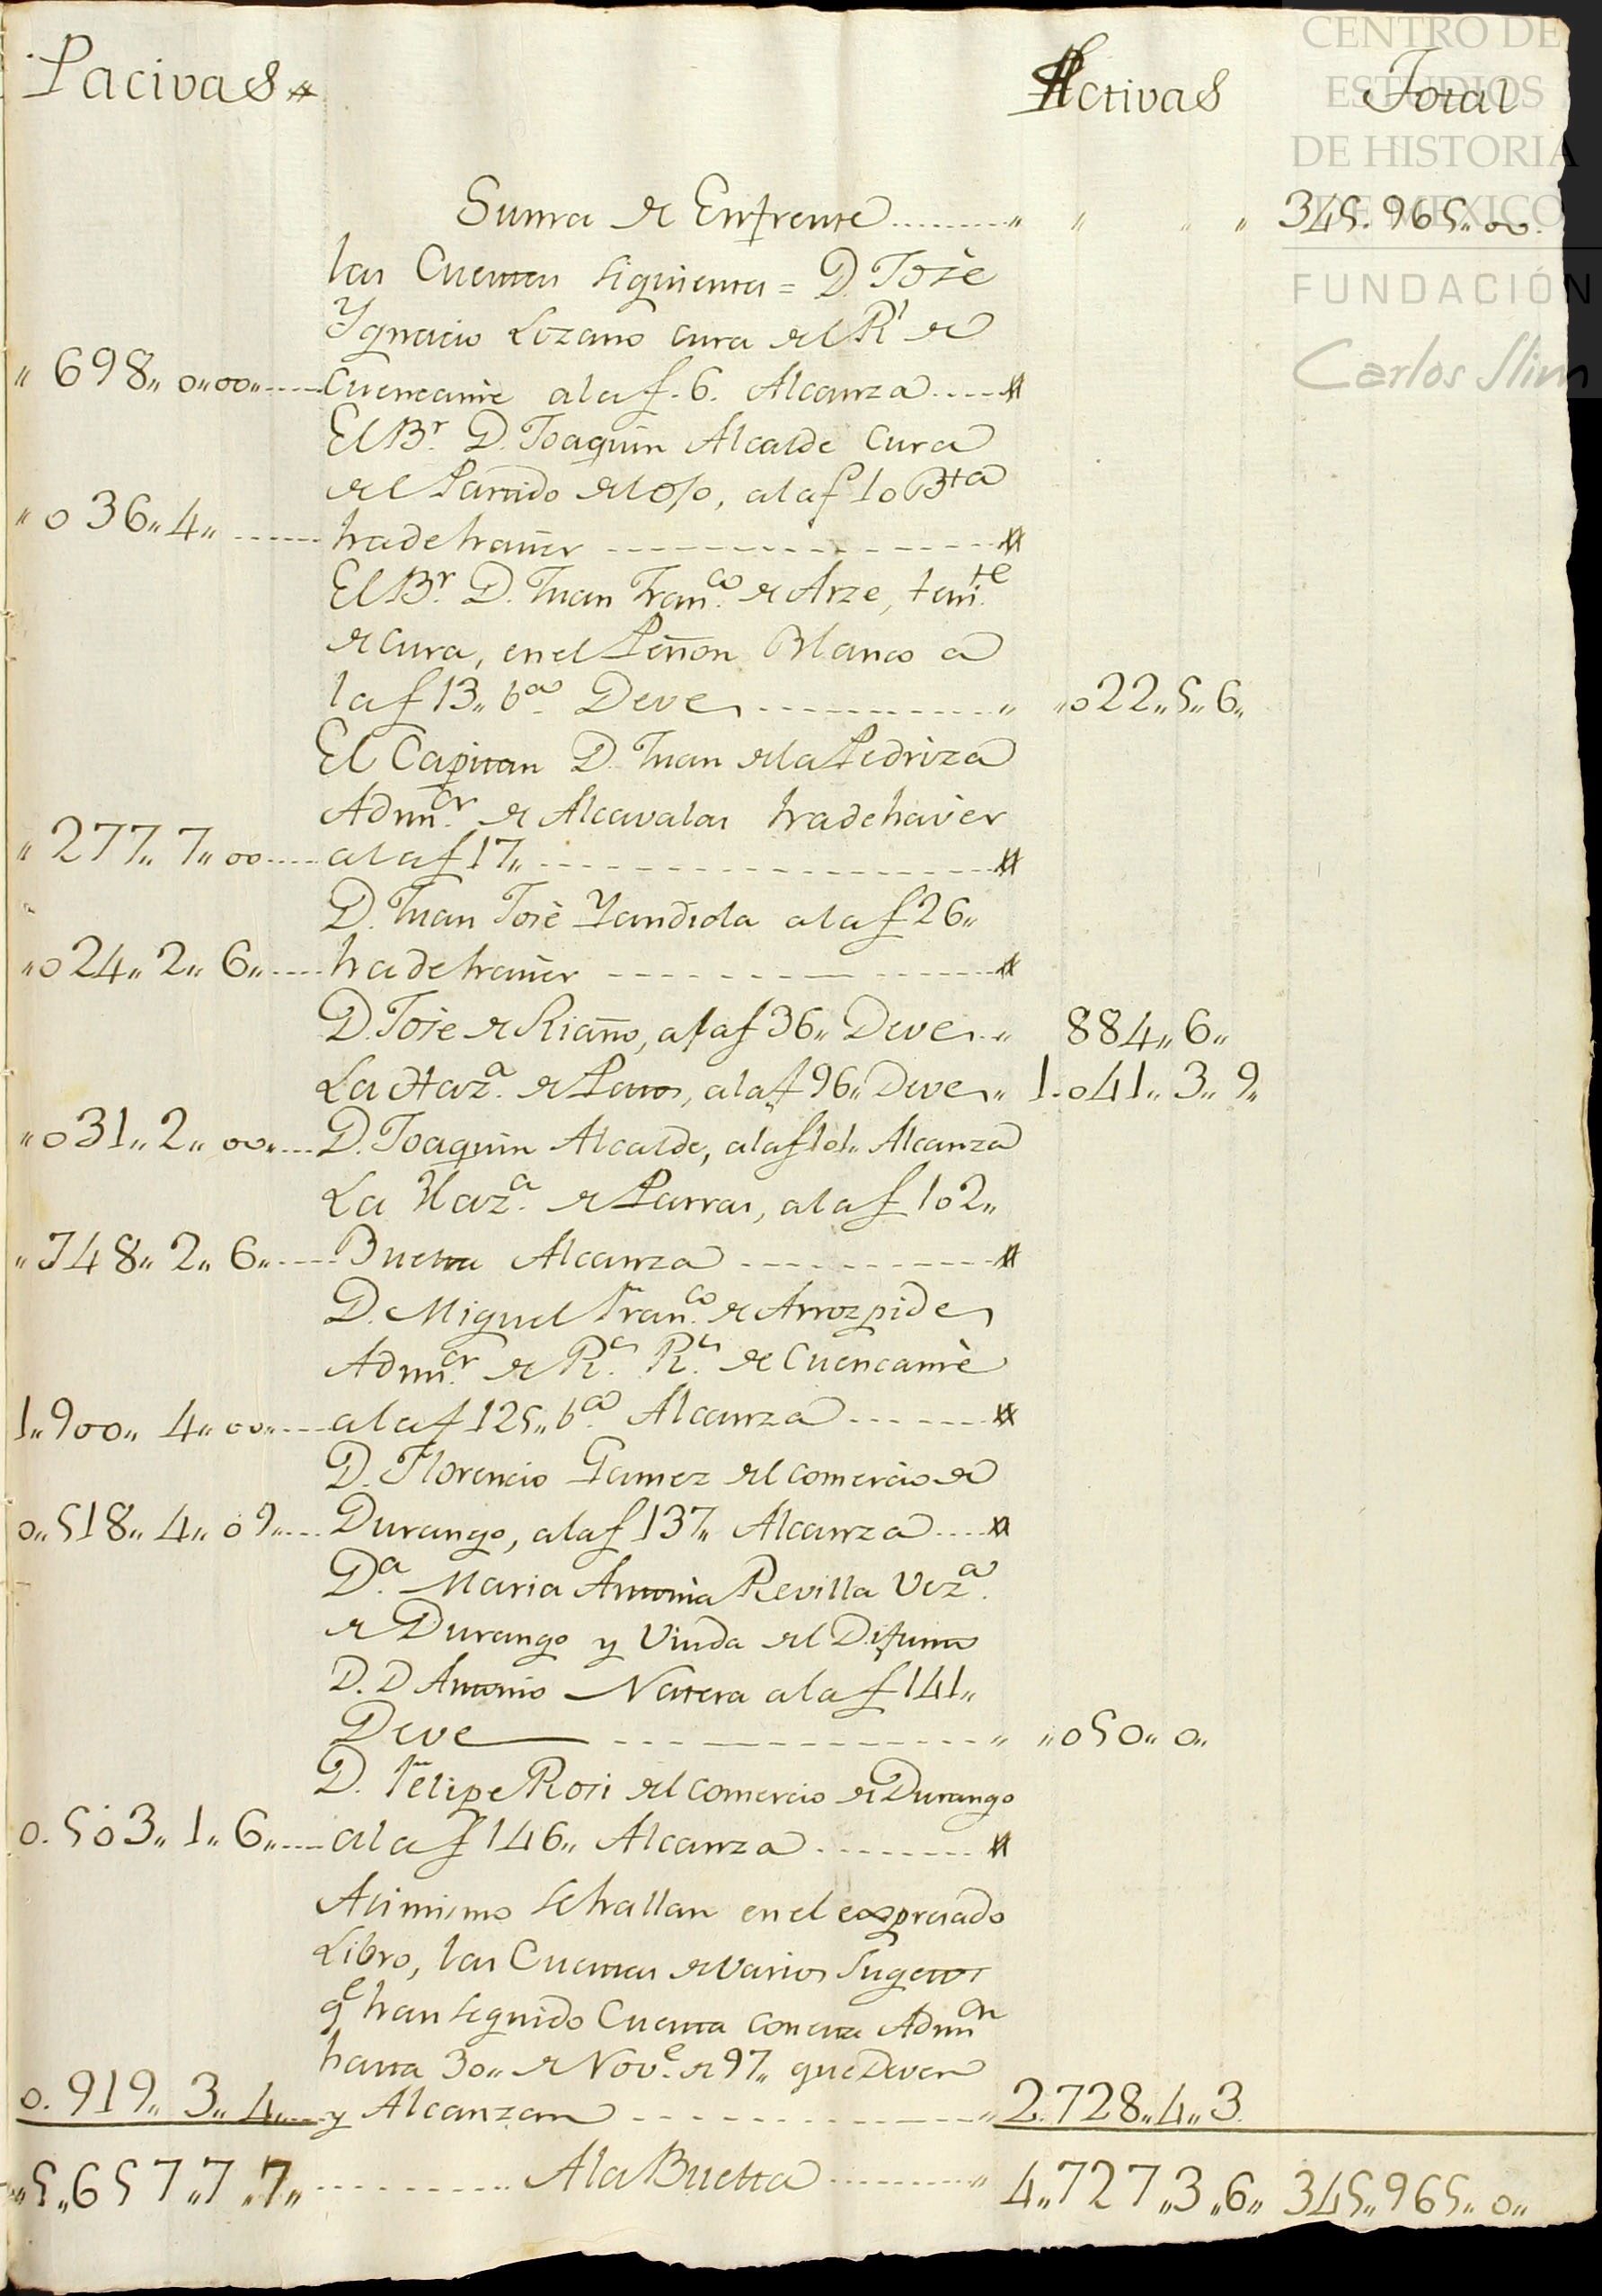 Pacivas
Activas
Total
Suma de Enfrente.........,, ,, ,, ,, 345.965,,oo.
las Cuentas siguientes = D. José
Ygnacio Lozano cura del Rl de
,,698,,o,,oo,,.....Cuencamé alaf.6. Alcanza....
El Br. D. Joaquin Alcalde Cura
del Partido del Oso, alaf 1o Bta
,,o36,,4,,......hadehaver
El Br. D. Juan Franco. de Arze, tente.
de cura, en el Peñon Blanco a
laf 13,,bta. Deve..........,, ,,o22,,5,,6,,
El Capitan D. Juan dela Pedriza
Admor. de Alcavalas hadehaver
,,277,,7,,oo.....alaf 17,,
D. Juan José Yandiola alaf 26,,
,,o24,,2,,6,,.....hadehaver
D. Jose de Riaño, alaf 36,, Deve..,, 884,,6,,
La Haza. de Patos, alaf 96,, Deve,, 1.o41,,3,,9,,
,,o31,,2,,oo,,....D. Joaquin Alcalde, alaf 1o1,, Alcanza
La Haza. de Parras, alaf 1o2,,
,,348,,2,,6,,.....Buelta Alcanza
D. Miguel Franco. de Arrozpide
Admor. de Rs. Rs. de Cuencamè
1,,9oo,,4,,oo,,....alaf 125,,bta. Alcanza
D. Florencio Gamez del comercio de
o,,518,,4,,o9,,....Durango, alaf 137,, Alcanza
Da. Maria Antonia Revilla Veza.
de Durango y Viuda del Difunto
D. D Antonio Natera alaf 141,,
Deve ,, ,,o5o,,o,,
D. Felipe Rosi del comercio de Durango
o.5o3,,1,,6,,....alaf 146,, Alcanza
Asimismo se hallan en el expresado
Libro, las Cuentas de varios Sugetos
qe han seguido Cuenta con esta Admon
hasta 3o,, de Nove. de 97,, que Deven
o.919,,3,,4,,....y Alcanzan ,,2.728,,4,,3.
,,5,,657,,7,,7,,..........Ala Buelta.........,, 4,,727,,3,,6,, 345,,965,,o,,
CENTRO DE
ESTUDIOS
DE HISTORIA
DE MEXICO
FUNDACIÓN
Carlos Slim